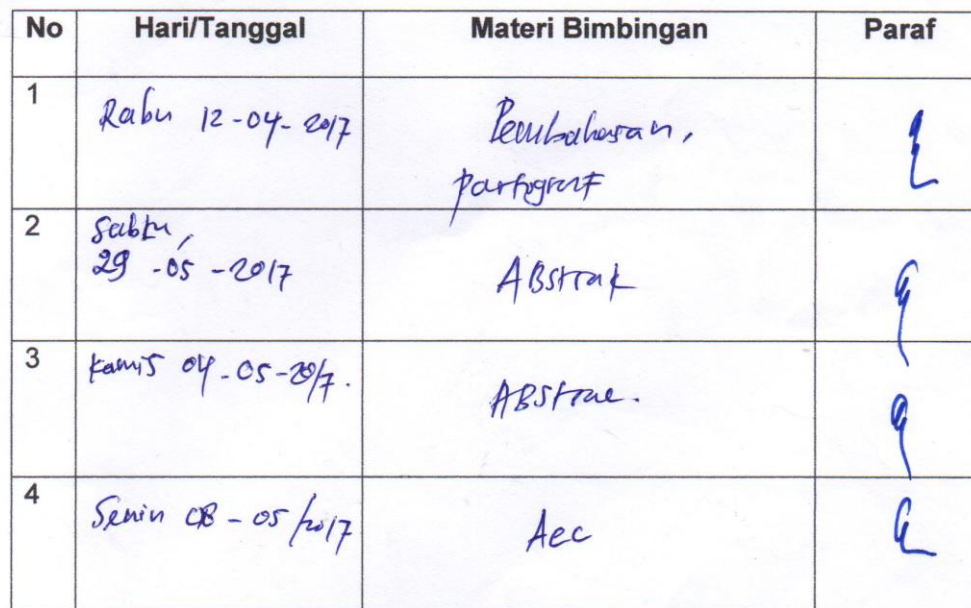 No Hari/Tanggal Materi Bimbingan Paraf
1
Rabu 12-04-2017 Pembahasan,
partograf
2 Sabtu,
29 -05 -2017 ABstrak
3 Kamis 04-05-2017. ABstrac.
4 Senin 08 - 05/2017 Acc